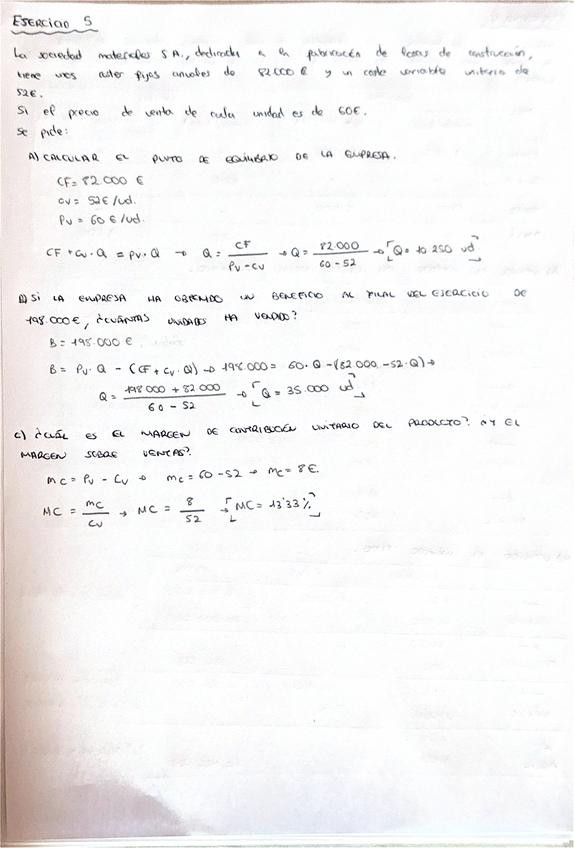 EJERCICIO 5
La sociedad materiales S.A., dedicada a la fabricación de losas de construcción,
tiene unos costes fijos anuales de 82000 € y un coste variable unitario de
52€.
Si el precio de venta de cada unidad es de 60€.
Se pide:
A) CALCULAR EL PUNTO DE EQUILIBRIO DE LA EMPRESA.
CF = 82.000 €
CV = 52€/ud.
PV = 60 €/ud.
CF + Cv · Q = PV · Q → Q = CF / (Pv - CV) → Q = 82 000 / (60 - 52) → Q = 10 250 ud
B) SI LA EMPRESA HA OBTENIDO UN BENEFICIO AL FINAL DEL EJERCICIO DE
198.000€, ¿CUÁNTAS UNIDADES HA VENDIDO?
B = 198.000 €
B = Pv · Q - (CF + Cv · Q) → 198.000 = 60 · Q - (82 000 - 52 · Q) →
Q = (198 000 + 82 000) / (60 - 52) → Q = 35.000 ud
C) ¿CUÁL ES EL MARGEN DE CONTRIBUCIÓN UNITARIO DEL PRODUCTO? ¿Y EL
MARGEN SOBRE VENTAS?
mc = Pv - Cv → mc = 60 - 52 → mc = 8€.
MC = mc / Cv → MC = 8 / 52 → MC = 13'33%